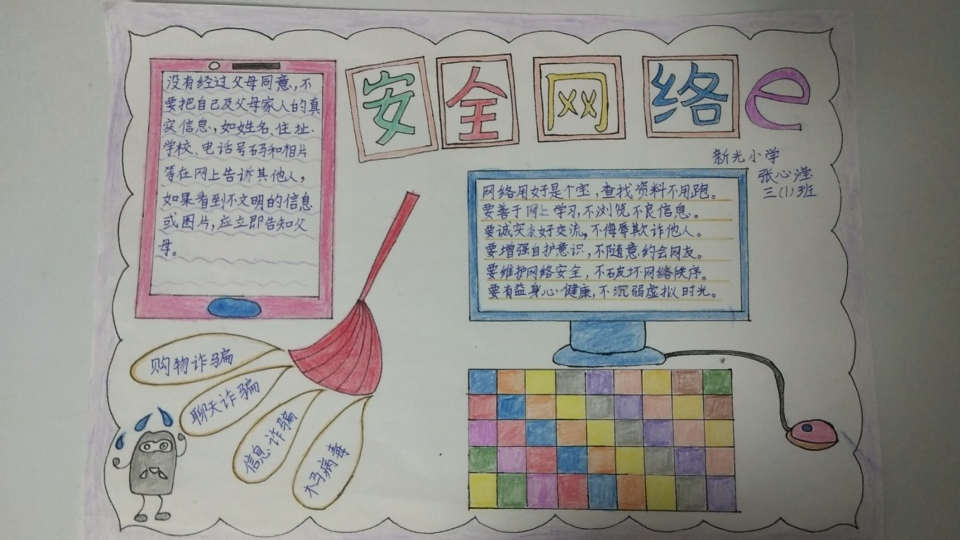 安全网络e
新光小学
张心滢
三(1)班
没有经过父母同意,不
要把自己及父母家人的真
实信息,如姓名、住址、
学校、电话号码和相片
等在网上告诉其他人,
如果看到不文明的信息
或图片,应立即告知父
母。
网络用好是个宝,查找资料不用跑。
要善于网上学习,不浏览不良信息。
要诚实友好交流,不侮辱欺诈他人。
要增强自护意识,不随意约会网友。
要维护网络安全,不破坏网络秩序。
要有益身心健康,不沉弱虚拟时光。
购物诈骗
聊天诈骗
信息诈骗
木马病毒